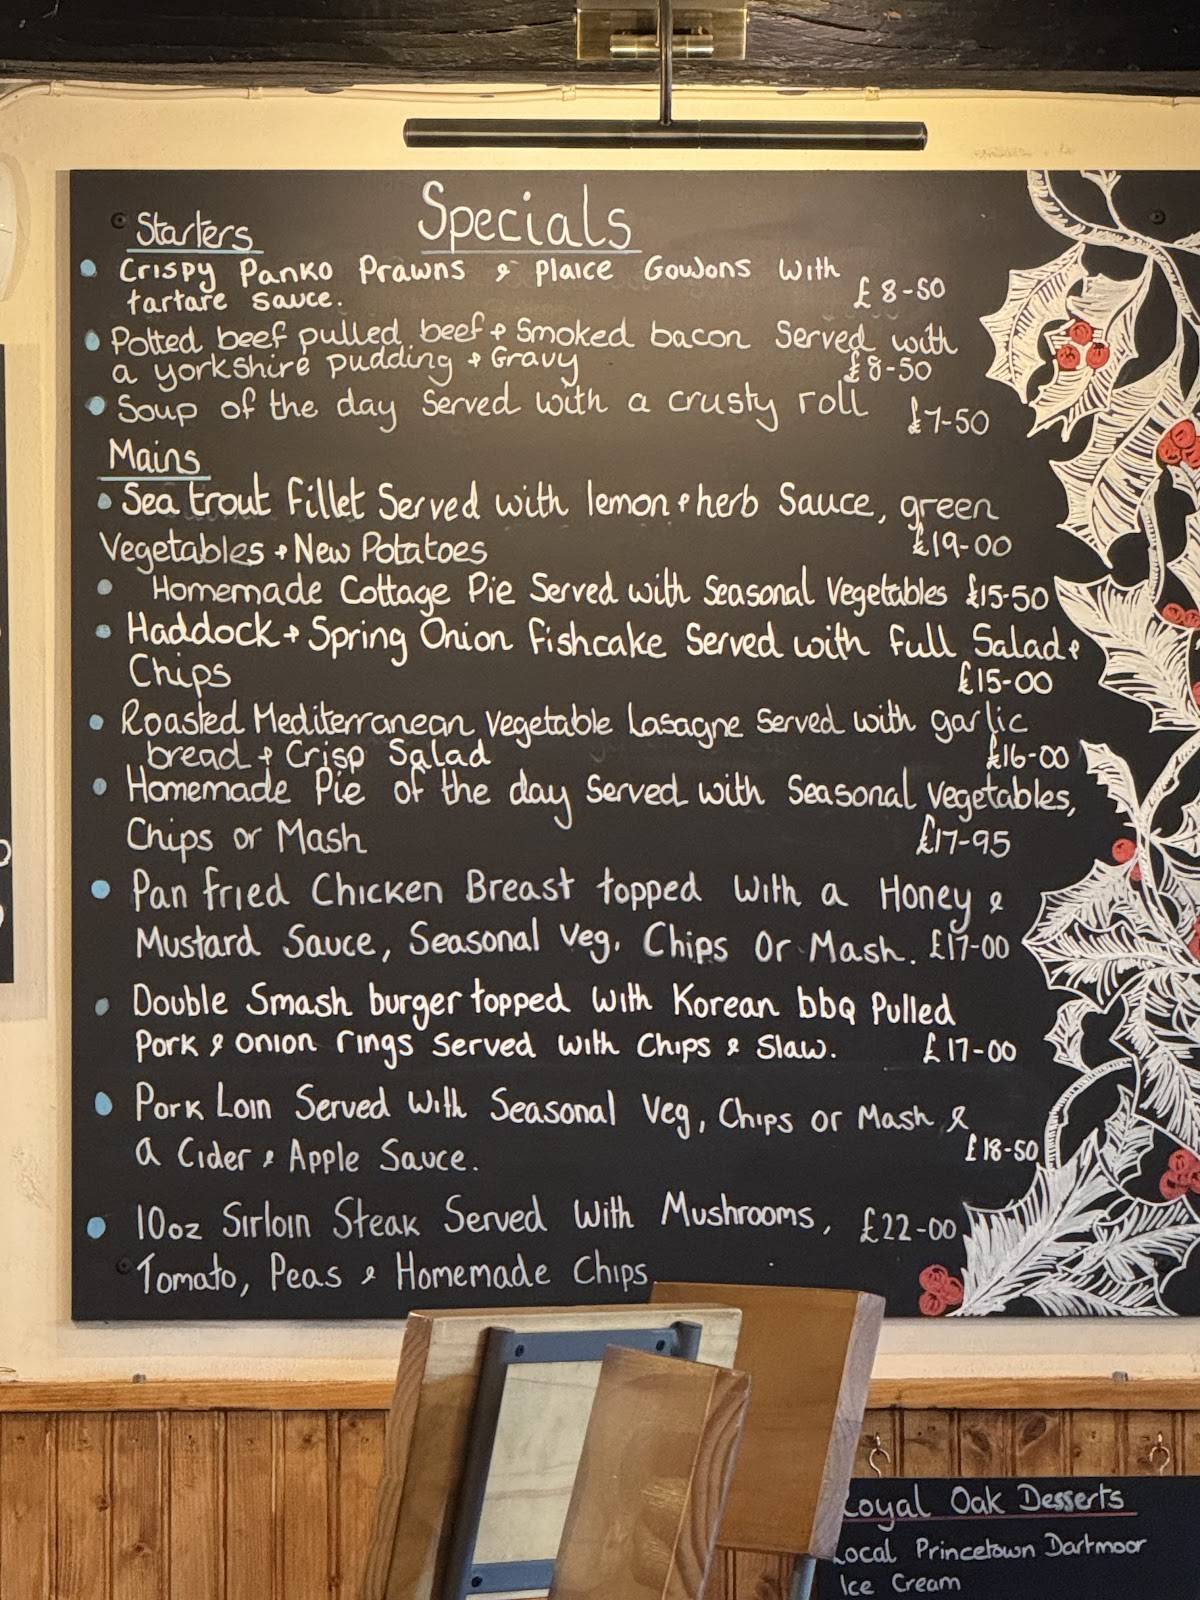 Specials
Starters
Crispy Panko Prawns & Plaice Goujons with
tartare sauce.
£8-50
Potted beef pulled beef + Smoked bacon Served with
a yorkshire pudding + Gravy
£8-50
Soup of the day Served with a crusty roll £7-50
Mains
Sea trout fillet Served with lemon + herb Sauce, green
Vegetables + New Potatoes £19-00
Homemade Cottage Pie Served with Seasonal Vegetables £15-50
Haddock + Spring Onion fishcake Served with full Salad +
Chips £15-00
Roasted Mediterranean Vegetable Lasagne Served with garlic
bread + Crisp Salad £16-00
Homemade Pie of the day Served with Seasonal Vegetables,
Chips or Mash £17-95
Pan fried Chicken Breast topped with a Honey &
Mustard Sauce, Seasonal Veg, Chips Or Mash. £17-00
Double Smash burger topped with Korean bbq Pulled
Pork & onion rings Served with Chips & Slaw. £17-00
Pork Loin Served with Seasonal Veg, Chips or Mash &
a Cider & Apple Sauce. £18-50
10oz Sirloin Steak Served with Mushrooms, £22-00
Tomato, Peas & Homemade Chips.
Royal Oak Desserts
Local Princetown Dartmoor
Ice Cream